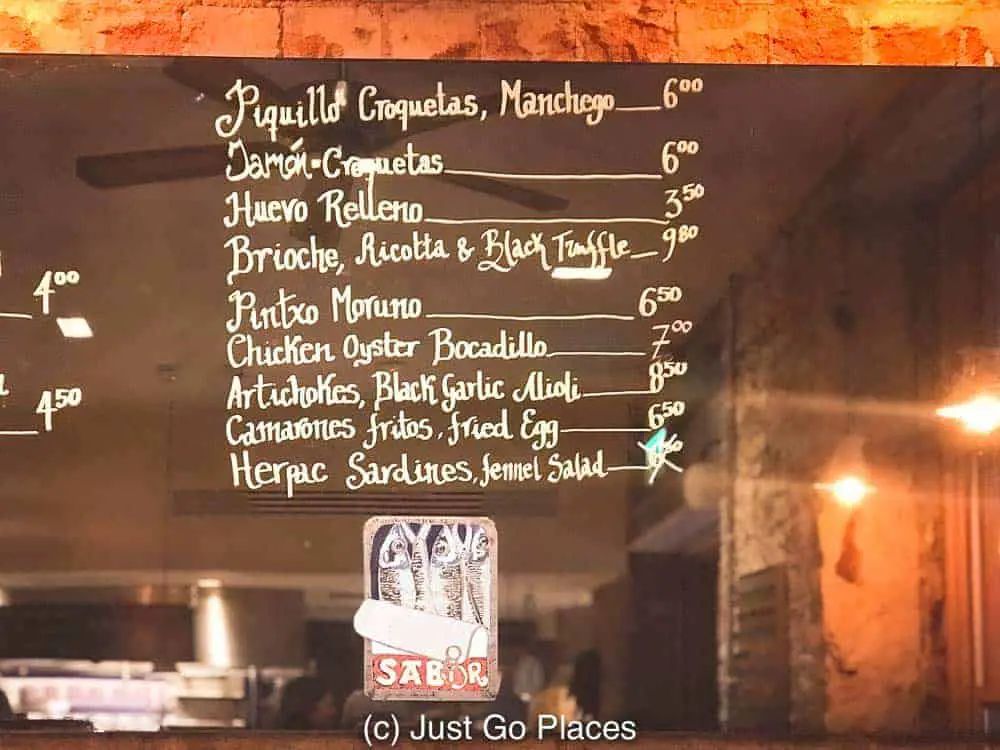 Piquillo Croquetas, Manchego 6⁰⁰
Jamón-Croquetas 6⁰⁰
Huevo Relleno 3⁵⁰
Brioche, Ricotta & Black Truffle 9⁸⁰
4⁰⁰
Pintxo Moruno 6⁵⁰
Chicken Oyster Bocadillo 7⁰⁰
Artichokes, Black Garlic Alioli 8⁵⁰
4⁵⁰
Camarones fritos, fried Egg 6⁵⁰
Herpac Sardines, fennel Salad
SABOR
(c) Just Go Places